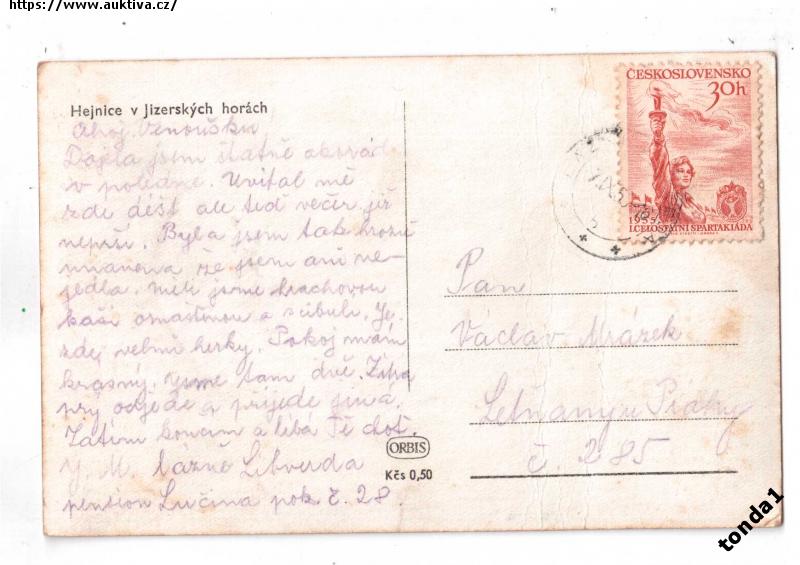 https://www.auktiva.cz/
Hejnice v Jizerských horách
Ahoj Venoušku
Dojela jsem šťatně akorád
v poledne. Uvítal mě
zde déšť ale teď večír již
neprší. Byla jsem tak hrozně
unavena že jsem ani ne-
jedla. Měli jsme hrachovou
kaši omaštěnou a cibuli. Je
zdej velmi hezky. Pokoj mám
krásný. jsme tam dvě. Zítra
prý odjede a přijede jiná.
Zatím končím a líbá Tě
J. M. lázně Libverda
pension Lučina pok. č. 28.
ORBIS
Kčs 0,50
ČESKOSLOVENSKO
30h
1955
I.CELOSTÁTNÍ SPARTAKIÁDA
Pan
Václav Mrázek
Letňany u Prahy
č. 285
tonda1